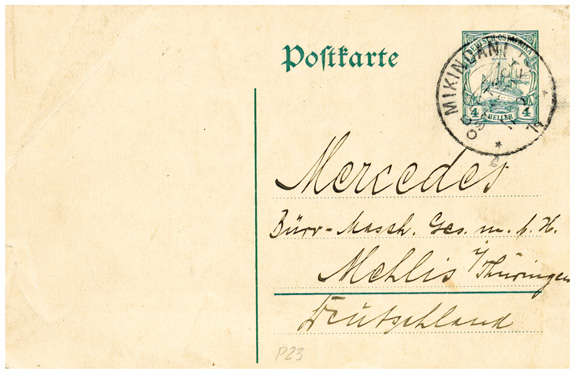 Postkarte
4 HELLER 4
MIKINDANI
Mercedes
Büro-Masch. Ges. m. b. H.
Mehlis i/Thüringen
Deutschland
P23